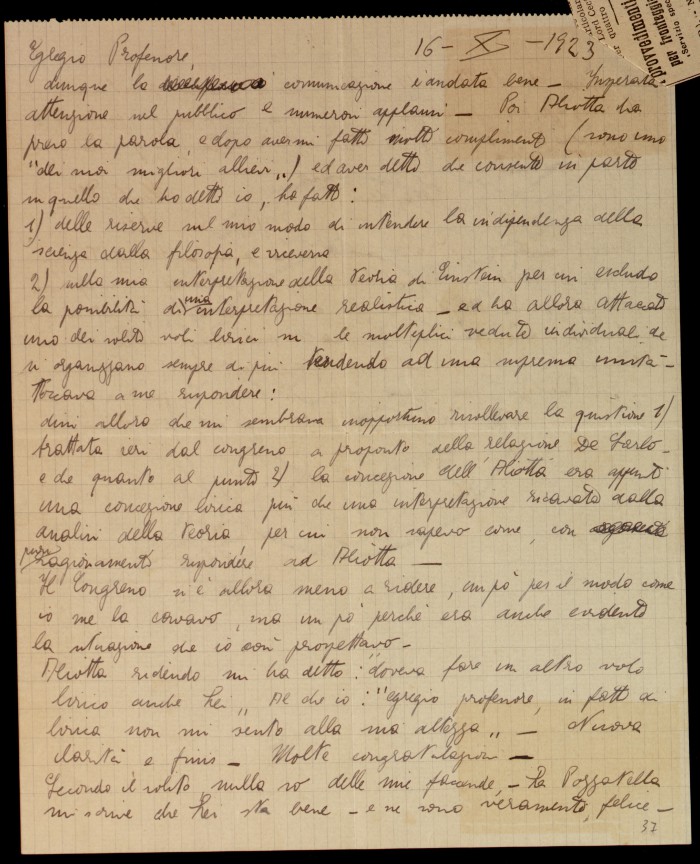 16 - X - 1923
Egregio Professore,
dunque la comunicazione è andata bene - Insperata
attenzione nel pubblico e numerosi applausi - Poi Aliotta ha
preso la parola, e dopo avermi fatto molti complimenti (sono uno
"dei suoi migliori allievi,,) ed aver detto che consente in parte
in quello che ho detto io, ha fatto:
1) delle riserve sul mio modo di intendere la indipendenza della
scienza dalla filosofia, e viceversa
2) sulla mia interpretazione della teoria di Einstein per cui escludo
la possibilità di una interpretazione realistica - ed ha allora attaccato
uno dei soliti voli lirici su le molteplici vedute individuali che
si organizzano sempre di più tendendo ad una suprema unità -
Toccava a me rispondere:
dissi allora che mi sembrava inopportuno risollevare la questione 1)
trattata ieri dal congresso a proposito della relazione De Sarlo -
e che quanto al punto 2) la concezione dell'Aliotta era appunto
una concezione lirica più che una interpretazione ricavata dalla
analisi della teoria per cui non sapevo come, con
puro ragionamento rispondere ad Aliotta -
Il Congresso s'è allora messo a ridere, un pò per il modo come
io me la cavavo, ma un pò perchè era anche evidente
la situazione che io così prospettavo -
Aliotta ridendo mi ha detto: "doveva fare un altro volo
lirico anche Lei,, Al che io: "egregio professore, in fatto di
lirica non mi sento alla sua altezza,, - Nuova
ilarità e finis - Molte congratulazioni -
Secondo il solito nulla so delle mie faccende, - La Pozzatella
mi scrive che Lei sta bene - e ne sono veramente, felice -
37
provvedimenti
per fronteggi